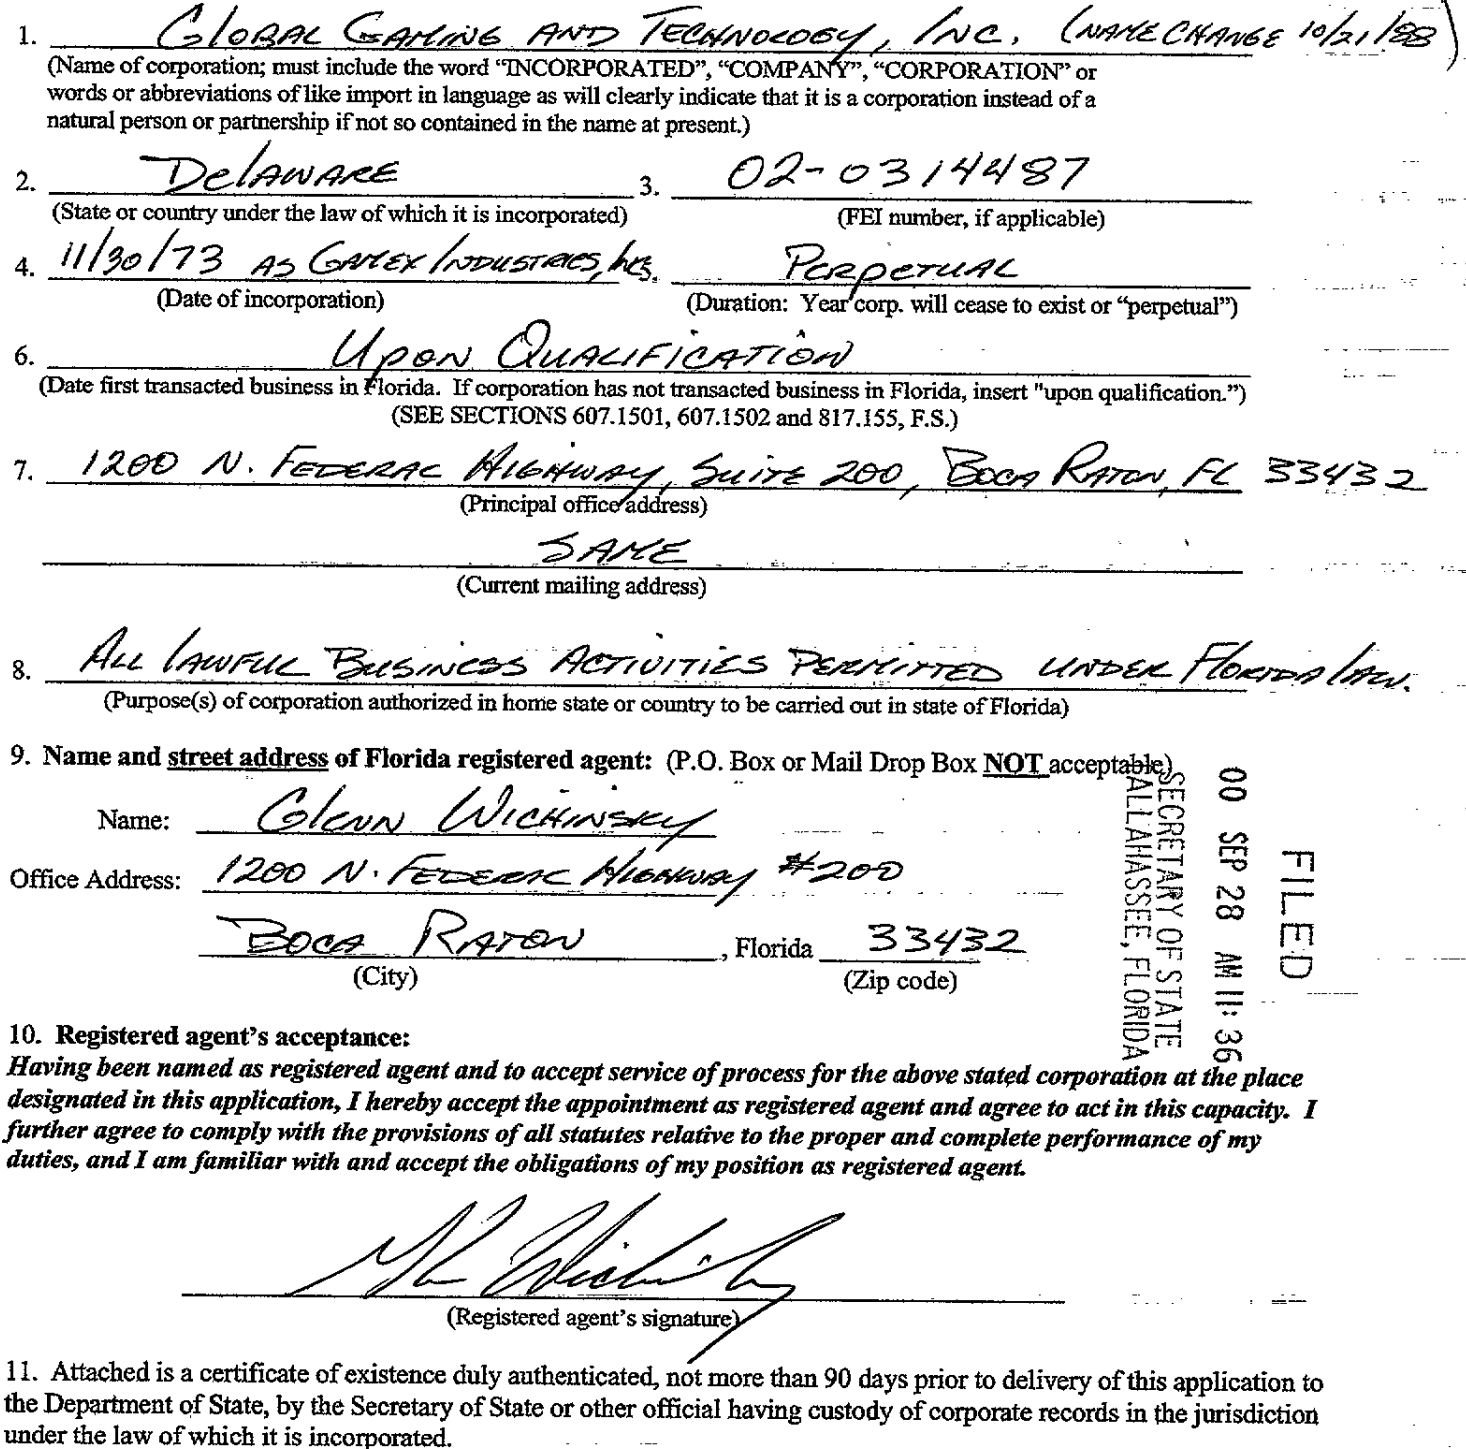 1. GLOBAL GAMING AND TECHNOLOGY, INC. (NAME CHANGE 10/21/88)
(Name of corporation; must include the word “INCORPORATED”, “COMPANY”, “CORPORATION” or
words or abbreviations of like import in language as will clearly indicate that it is a corporation instead of a
natural person or partnership if not so contained in the name at present.)
2. DELAWARE 3. 02-0314487
(State or country under the law of which it is incorporated) (FEI number, if applicable)
4. 11/30/73 AS GAMEX INDUSTRIES, INC. PERPETUAL
(Date of incorporation) (Duration: Year corp. will cease to exist or “perpetual”)
6. UPON QUALIFICATION
(Date first transacted business in Florida. If corporation has not transacted business in Florida, insert "upon qualification.”)
(SEE SECTIONS 607.1501, 607.1502 and 817.155, F.S.)
7. 1200 N. FEDERAL HIGHWAY, SUITE 200, BOCA RATON, FL 33432
(Principal office address)
SAME
(Current mailing address)
8. ALL LAWFUL BUSINESS ACTIVITIES PERMITTED UNDER FLORIDA LAW.
(Purpose(s) of corporation authorized in home state or country to be carried out in state of Florida)
9. Name and street address of Florida registered agent: (P.O. Box or Mail Drop Box NOT acceptable)
Name: GLENN WICHINSKY
Office Address: 1200 N. FEDERAL HIGHWAY #200
BOCA RATON, Florida 33432
(City) (Zip code)
FILED
00 SEP 28 AM 11:36
SECRETARY OF STATE
ALLAHASSEE, FLORIDA
10. Registered agent’s acceptance:
Having been named as registered agent and to accept service of process for the above stated corporation at the place
designated in this application, I hereby accept the appointment as registered agent and agree to act in this capacity. I
further agree to comply with the provisions of all statutes relative to the proper and complete performance of my
duties, and I am familiar with and accept the obligations of my position as registered agent.
(Registered agent’s signature)
11. Attached is a certificate of existence duly authenticated, not more than 90 days prior to delivery of this application to
the Department of State, by the Secretary of State or other official having custody of corporate records in the jurisdiction
under the law of which it is incorporated.